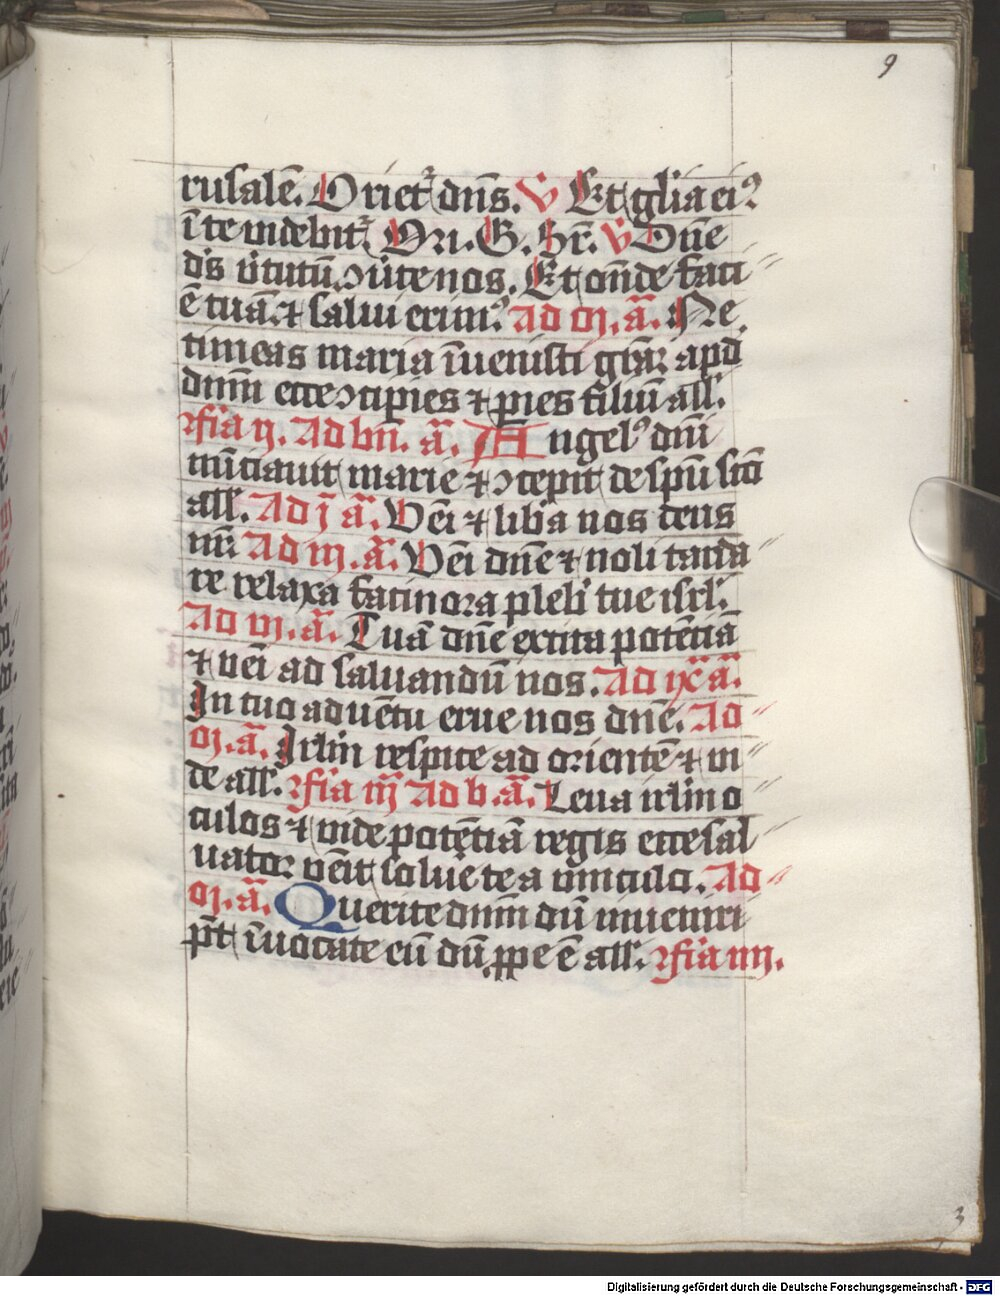 9
rusalē. Oriet᷑ dn̄s. V Et gl̄ia eiꝰ
ī te videbit᷑ Ori. G. Hr̄. V Dn̄e
ds̄ v̄tutū ꝯūte nos. Et on̄de faci
ē tuā ⁊ salui erimꝰ Ad m̄. ā. Ne
timeas maria īuenisti gr̄aꝫ apd
dn̄m ecce ꝯcipies ⁊ p̄ies filiū all̄.
Fīa ij. Ad bn̄. ā. Angelꝰ dn̄i
nūciauit marie ⁊ ꝯcepit de spū sc̄o
all̄. Ad j ā. Vēi ⁊ lib̄a nos deus
nr̄ Ad iij. ā. Vēi dn̄e ⁊ noli tarda
re relaxa facinora plebi tue isrl̄.
Ad vj. ā. Tuā dn̄e excita potētiā
⁊ vēi ad saluandū nos. Ad ix ā.
In tuo aduētu erue nos dn̄e. Ad
m̄. ā. Irl̄m respice ad orientē ⁊ vi
de all̄. Fīa iij Ad b. ā. Leua irl̄m o
culos ⁊ vide potētiā regis ecce sal
uator vēit soluē te a vinculo. Ad
m̄. ā. Querite dn̄m dū inueniri
pt̄ īuocate eū dū ꝓpe ē all̄. Fīa iiij.
3
Digitalisierung gefördert durch die Deutsche Forschungsgemeinschaft - DFG